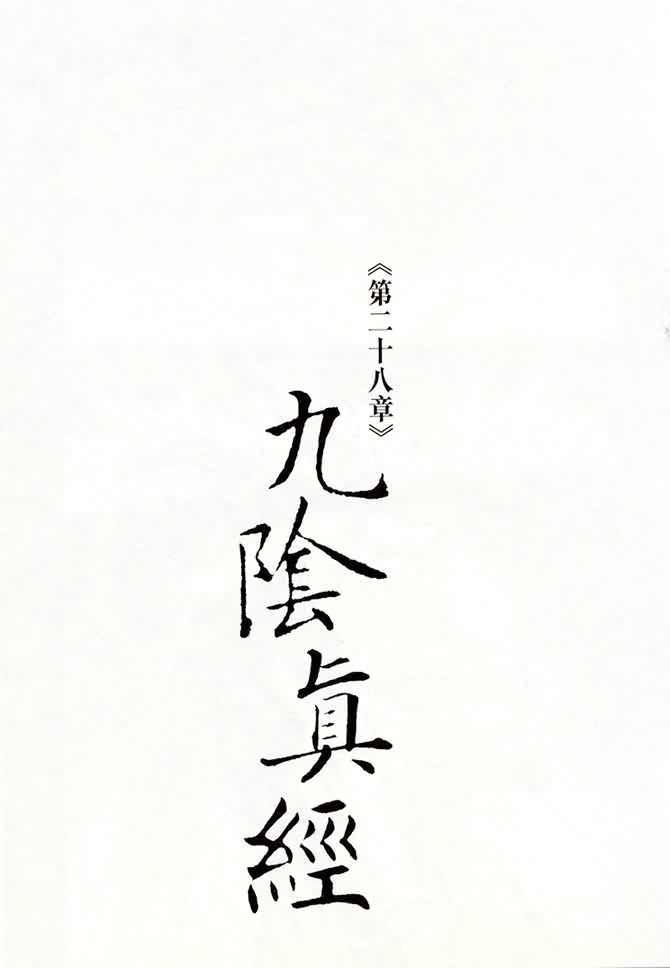 《第二十八章》
九陰眞經